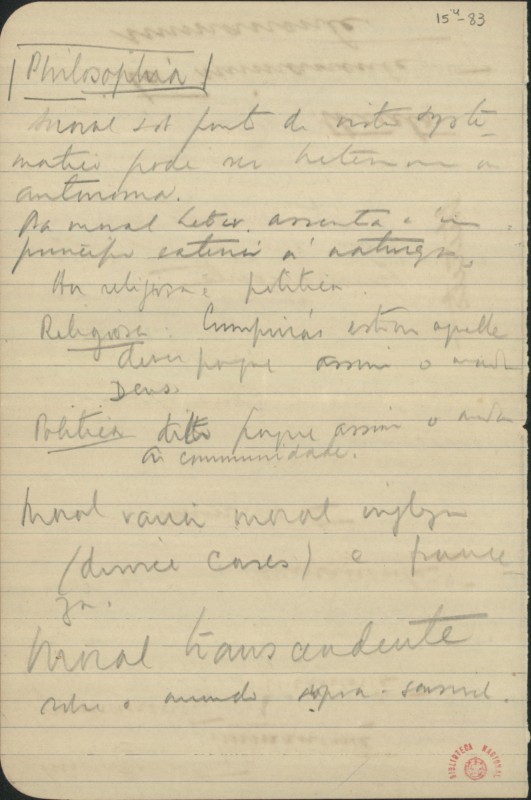 15⁴-83
Philosophia
Moral sob ponto de vista syste-
matico pode ser heteronoma ou
autonoma.
Na moral heter. assenta e' um
principio exterior á natureza.
Ha religiosa e politica.
Religiosa: Cumprirás este ou aquelle
dever porque assim o manda
Deus.
Politica ditto porque assim o manda
a communidade.
Moral varia moral ingleza
(divorce cases) e france-
za.
Moral transcendente
sobre o mundo supra-sensivel.
BIBLIOTECA NACIONAL